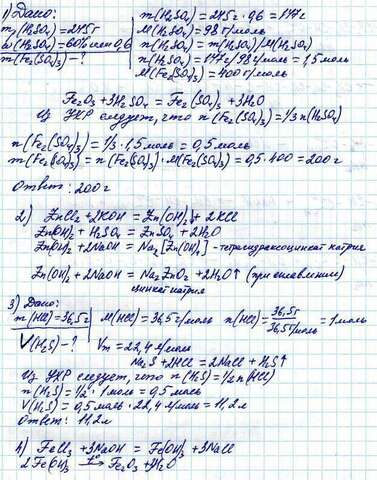 1) Дано:
m(H₂SO₄) = 245г
w(H₂SO₄) = 60% или 0,6
m(Fe₂(SO₄)₃) - ?
m(H₂SO₄) = 245г · 0,6 = 147г
M(H₂SO₄) = 98 г/моль
n(H₂SO₄) = m(H₂SO₄)/M(H₂SO₄)
n(H₂SO₄) = 147г/98 г/моль = 1,5 моль
M(Fe₂(SO₄)₃) = 400 г/моль
Fe₂O₃ + 3H₂SO₄ = Fe₂(SO₄)₃ + 3H₂O
Из УХР следует, что n(Fe₂(SO₄)₃) = 1/3 n(H₂SO₄)
n(Fe₂(SO₄)₃) = 1/3 · 1,5 моль = 0,5 моль
m(Fe₂(SO₄)₃) = n(Fe₂(SO₄)₃) · M(Fe₂(SO₄)₃) = 0,5 · 400 = 200г
Ответ: 200г
2) ZnCl₂ + 2KOH = Zn(OH)₂↓ + 2KCl
Zn(OH)₂ + H₂SO₄ = ZnSO₄ + 2H₂O
Zn(OH)₂ + 2NaOH = Na₂[Zn(OH)₄] - тетрагидроксоцинкат натрия
Zn(OH)₂ + 2NaOH = Na₂ZnO₂ + 2H₂O↑ (при сплавлении)
цинкат натрия
3) Дано:
m(HCl) = 36,5г
V(H₂S) - ?
M(HCl) = 36,5 г/моль n(HCl) = 36,5г / 36,5г/моль = 1 моль
Vm = 22,4 л/моль
Na₂S + 2HCl = 2NaCl + H₂S↑
Из УХР следует, что n(H₂S) = 1/2 n(HCl)
n(H₂S) = 1/2 · 1 моль = 0,5 моль
V(H₂S) = 0,5 моль · 22,4 л/моль = 11,2л
Ответ: 11,2л
4) FeCl₃ + 3NaOH = Fe(OH)₃ + 3NaCl
2Fe(OH)₃ →t° Fe₂O₃ + 3H₂O